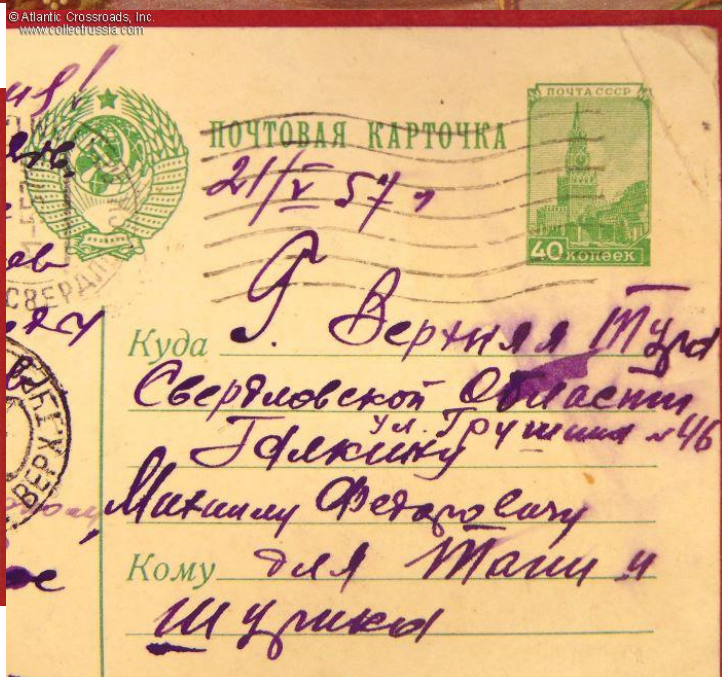 © Atlantic Crossroads, Inc.
www.collectrussia.com
ПОЧТА СССР
ПОЧТОВАЯ КАРТОЧКА
21/V 57 г
40 КОПЕЕК
СВЕРДЛ
ВЕРХ
Куда Г. Верхняя Тура
Свердловской Области
ул. Грушина № 46
Галкину
Михаилу Федаровичу
Кому для Тани и
Шурика